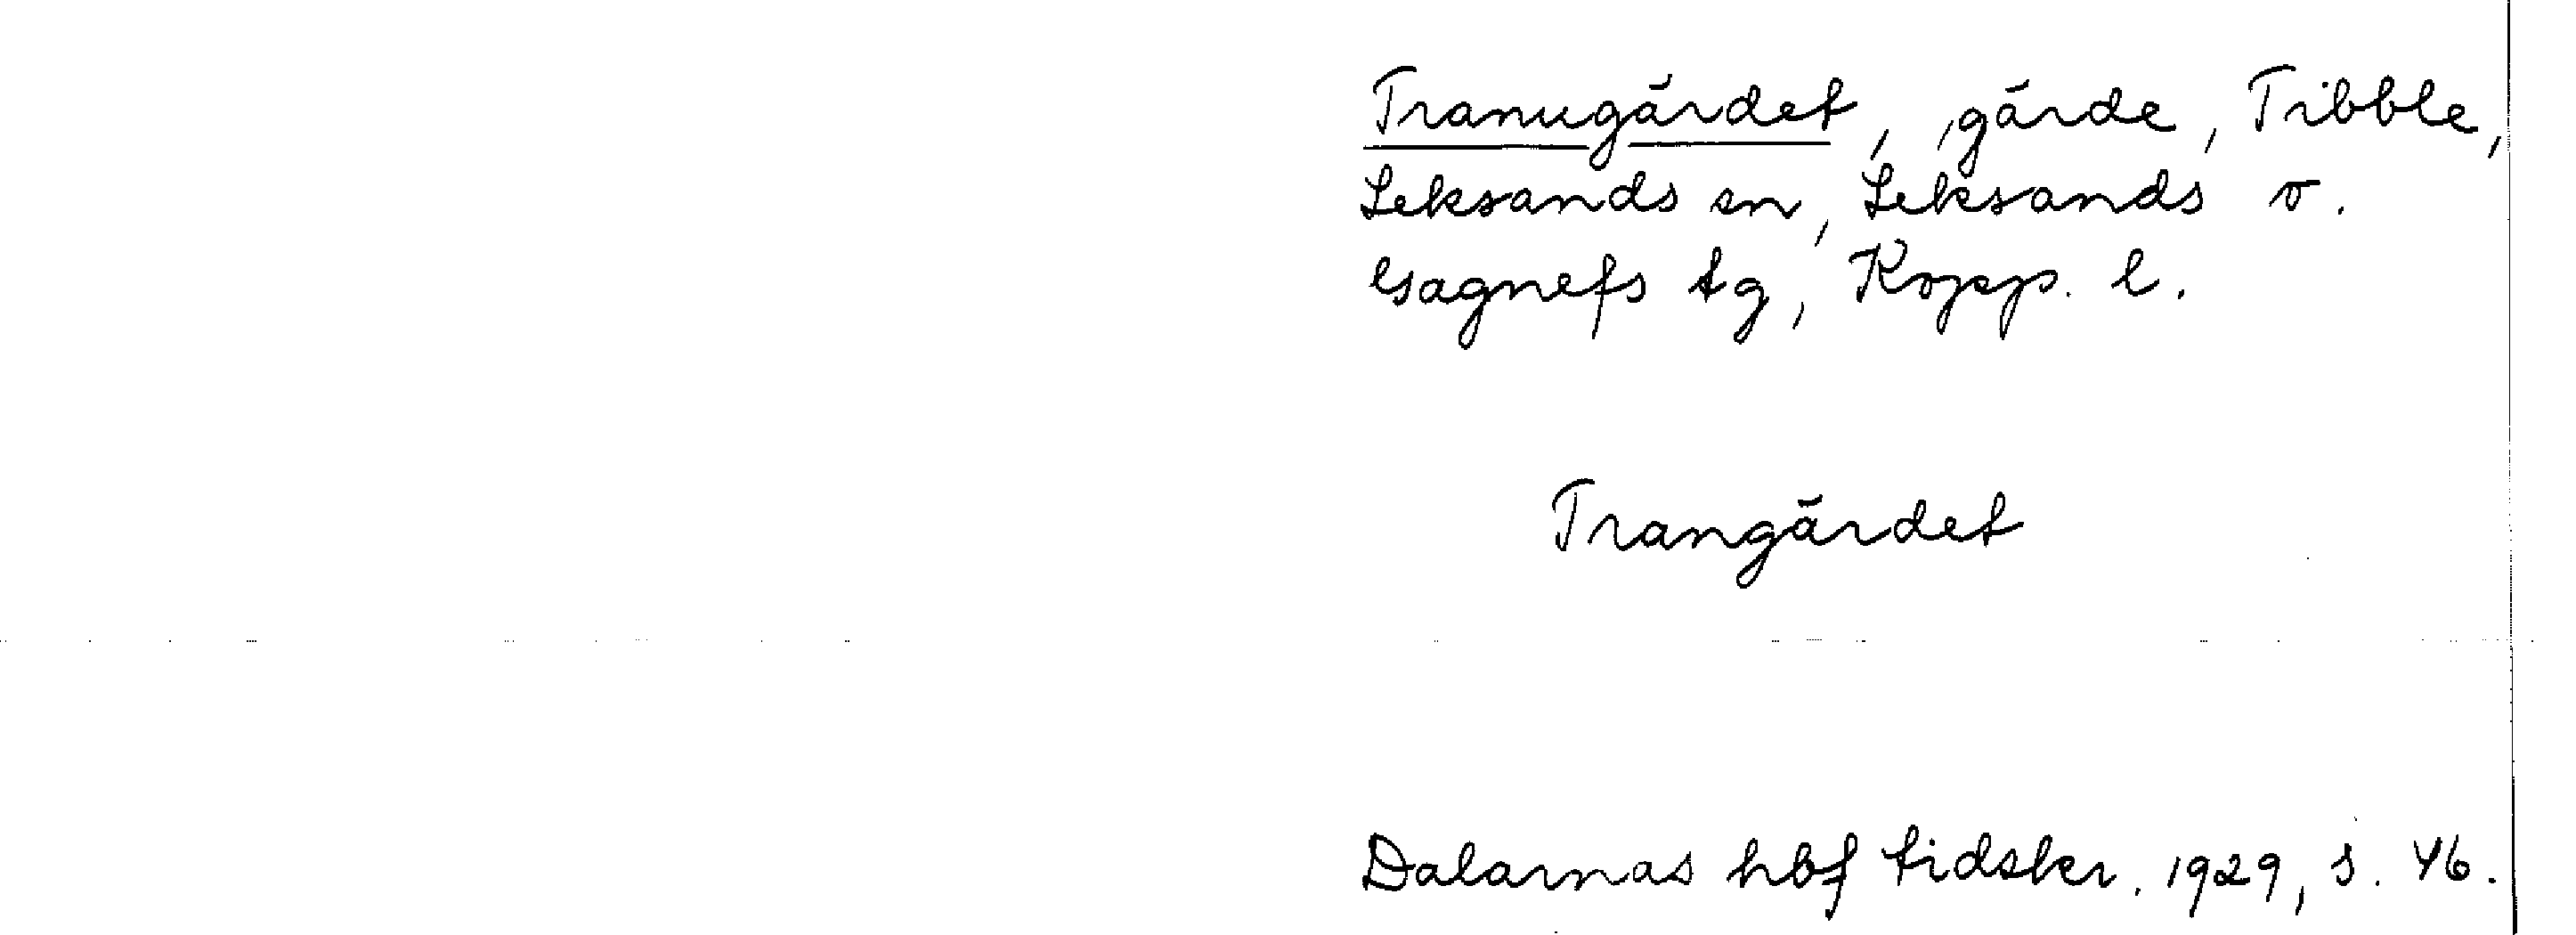 Tranugärdet, gärde, Tibble,
Leksands sn, Leksands o.
Gagnefs tg, Kopp. l.
Trangärdet
Dalarnas hbf tidskr. 1929, s. 46.